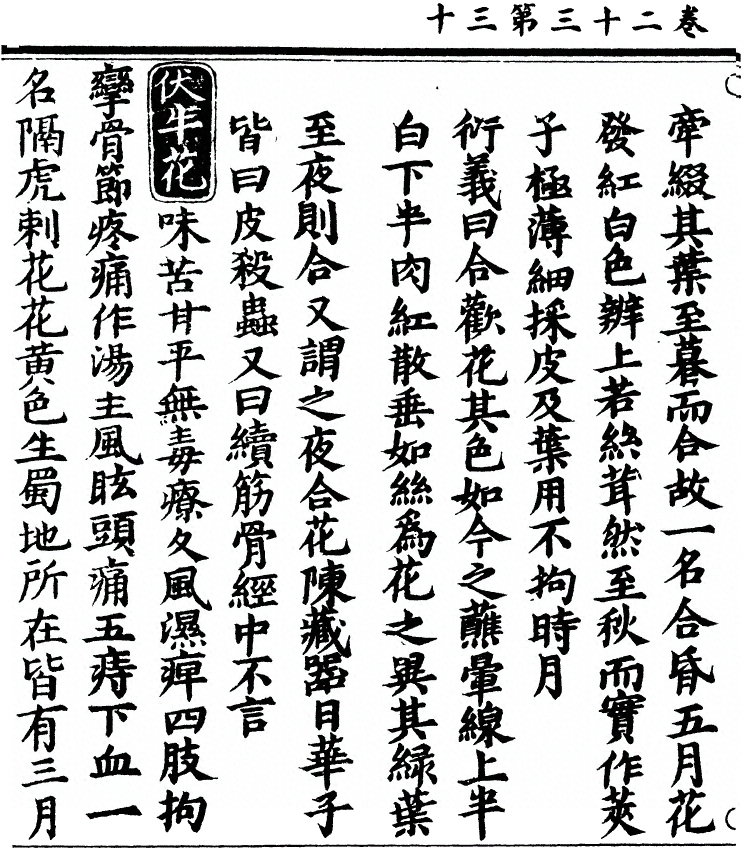 卷二十三第三十
牽綴其葉至暮而合故一名合昏五月花
發紅白色瓣上若絲茸然至秋而實作莢
子極薄細採皮及葉用不拘時月
衍義曰合歡花其色如今之蘸暈線上半
白下半肉紅散垂如絲為花之異其綠葉
至夜則合又謂之夜合花陳藏器日華子
皆曰皮殺蟲又曰續筋骨經中不言
伏牛花味苦甘平無毒療久風濕痺四肢拘
攣骨節疼痛作湯主風眩頭痛五痔下血一
名隔虎刺花花黃色生蜀地所在皆有三月